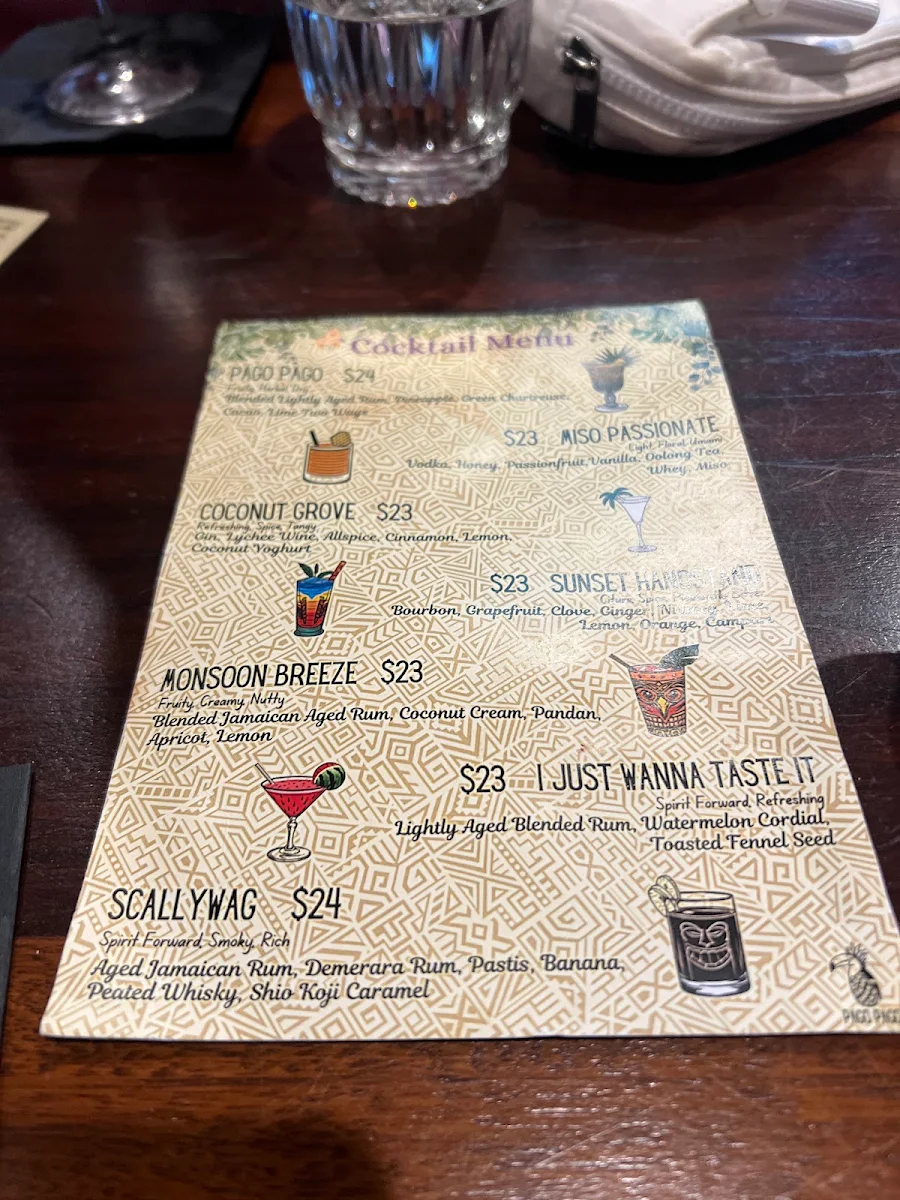 Cocktail Menu
PAGO PAGO $24
Fruity, Herbal, Dry
Blended Lightly Aged Rum, Pineapple, Green Chartreuse,
Cacao, Lime Two Ways
$23 MISO PASSIONATE
Light, Floral, Umami
Vodka, Honey, Passionfruit, Vanilla, Oolong Tea,
Whey, Miso
COCONUT GROVE $23
Refreshing, Spice, Tangy
Gin, Lychee Wine, Allspice, Cinnamon, Lemon,
Coconut Yoghurt
$23 SUNSET
Citrus, Spice,
Bourbon, Grapefruit, Clove, Ginger,
Lemon, Orange, Campari
MONSOON BREEZE $23
Fruity, Creamy, Nutty
Blended Jamaican Aged Rum, Coconut Cream, Pandan,
Apricot, Lemon
$23 I JUST WANNA TASTE IT
Spirit Forward, Refreshing
Lightly Aged Blended Rum, Watermelon Cordial,
Toasted Fennel Seed
SCALLYWAG $24
Spirit Forward, Smoky, Rich
Aged Jamaican Rum, Demerara Rum, Pastis, Banana,
Peated Whisky, Shio Koji Caramel
PAGO PAGO